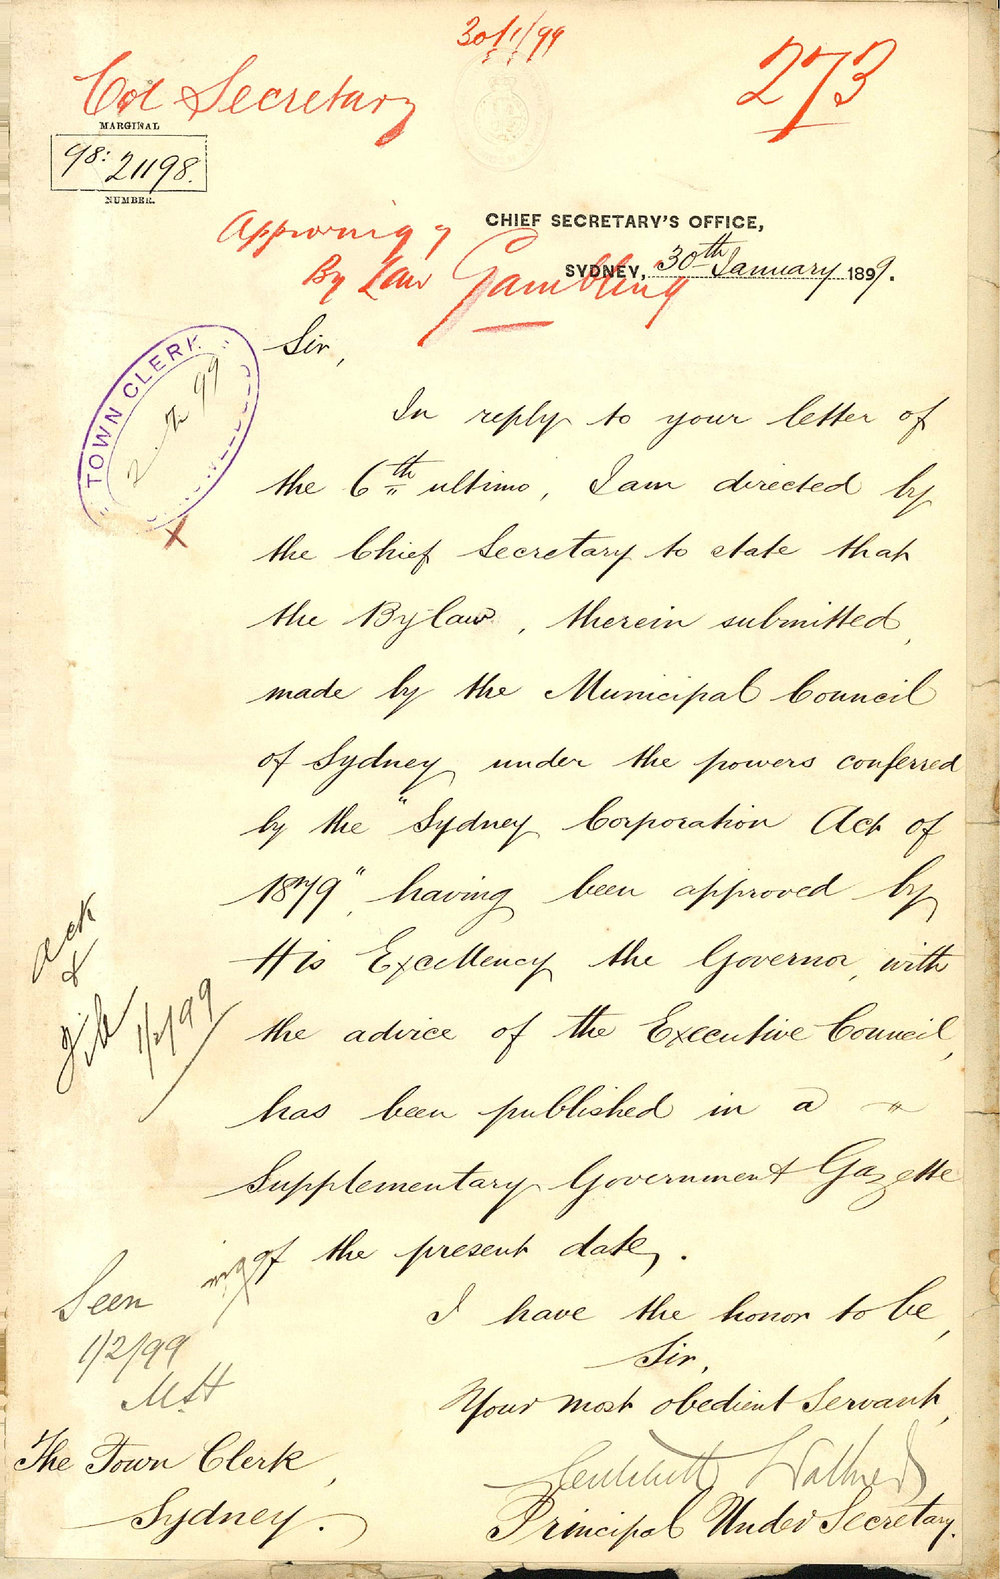 30/1/99
Col Secretary
273
MARGINAL
98: 21198.
NUMBER.
Approving of
By Law Gambling
CHIEF SECRETARY'S OFFICE,
SYDNEY, 30th January 1899.
TOWN CLERK
2. 2. 99
Sir,
In reply to your letter of
the 6th ultimo, I am directed by
the Chief Secretary to state that
the By law, therein submitted,
made by the Municipal Council
of Sydney under the powers conferred
by the "Sydney Corporation Act of
1879", having been approved by
His Excellency the Governor, with
the advice of the Executive Council,
has been published in a
Supplementary Government Gazette
of the present date,.
Ack
&
File 1/2/99
I have the honor to be,
Sir,
Your most obedient Servant,
Critchett Walker
Principal Under Secretary.
Seen
1/2/99
The Town Clerk,
Sydney.